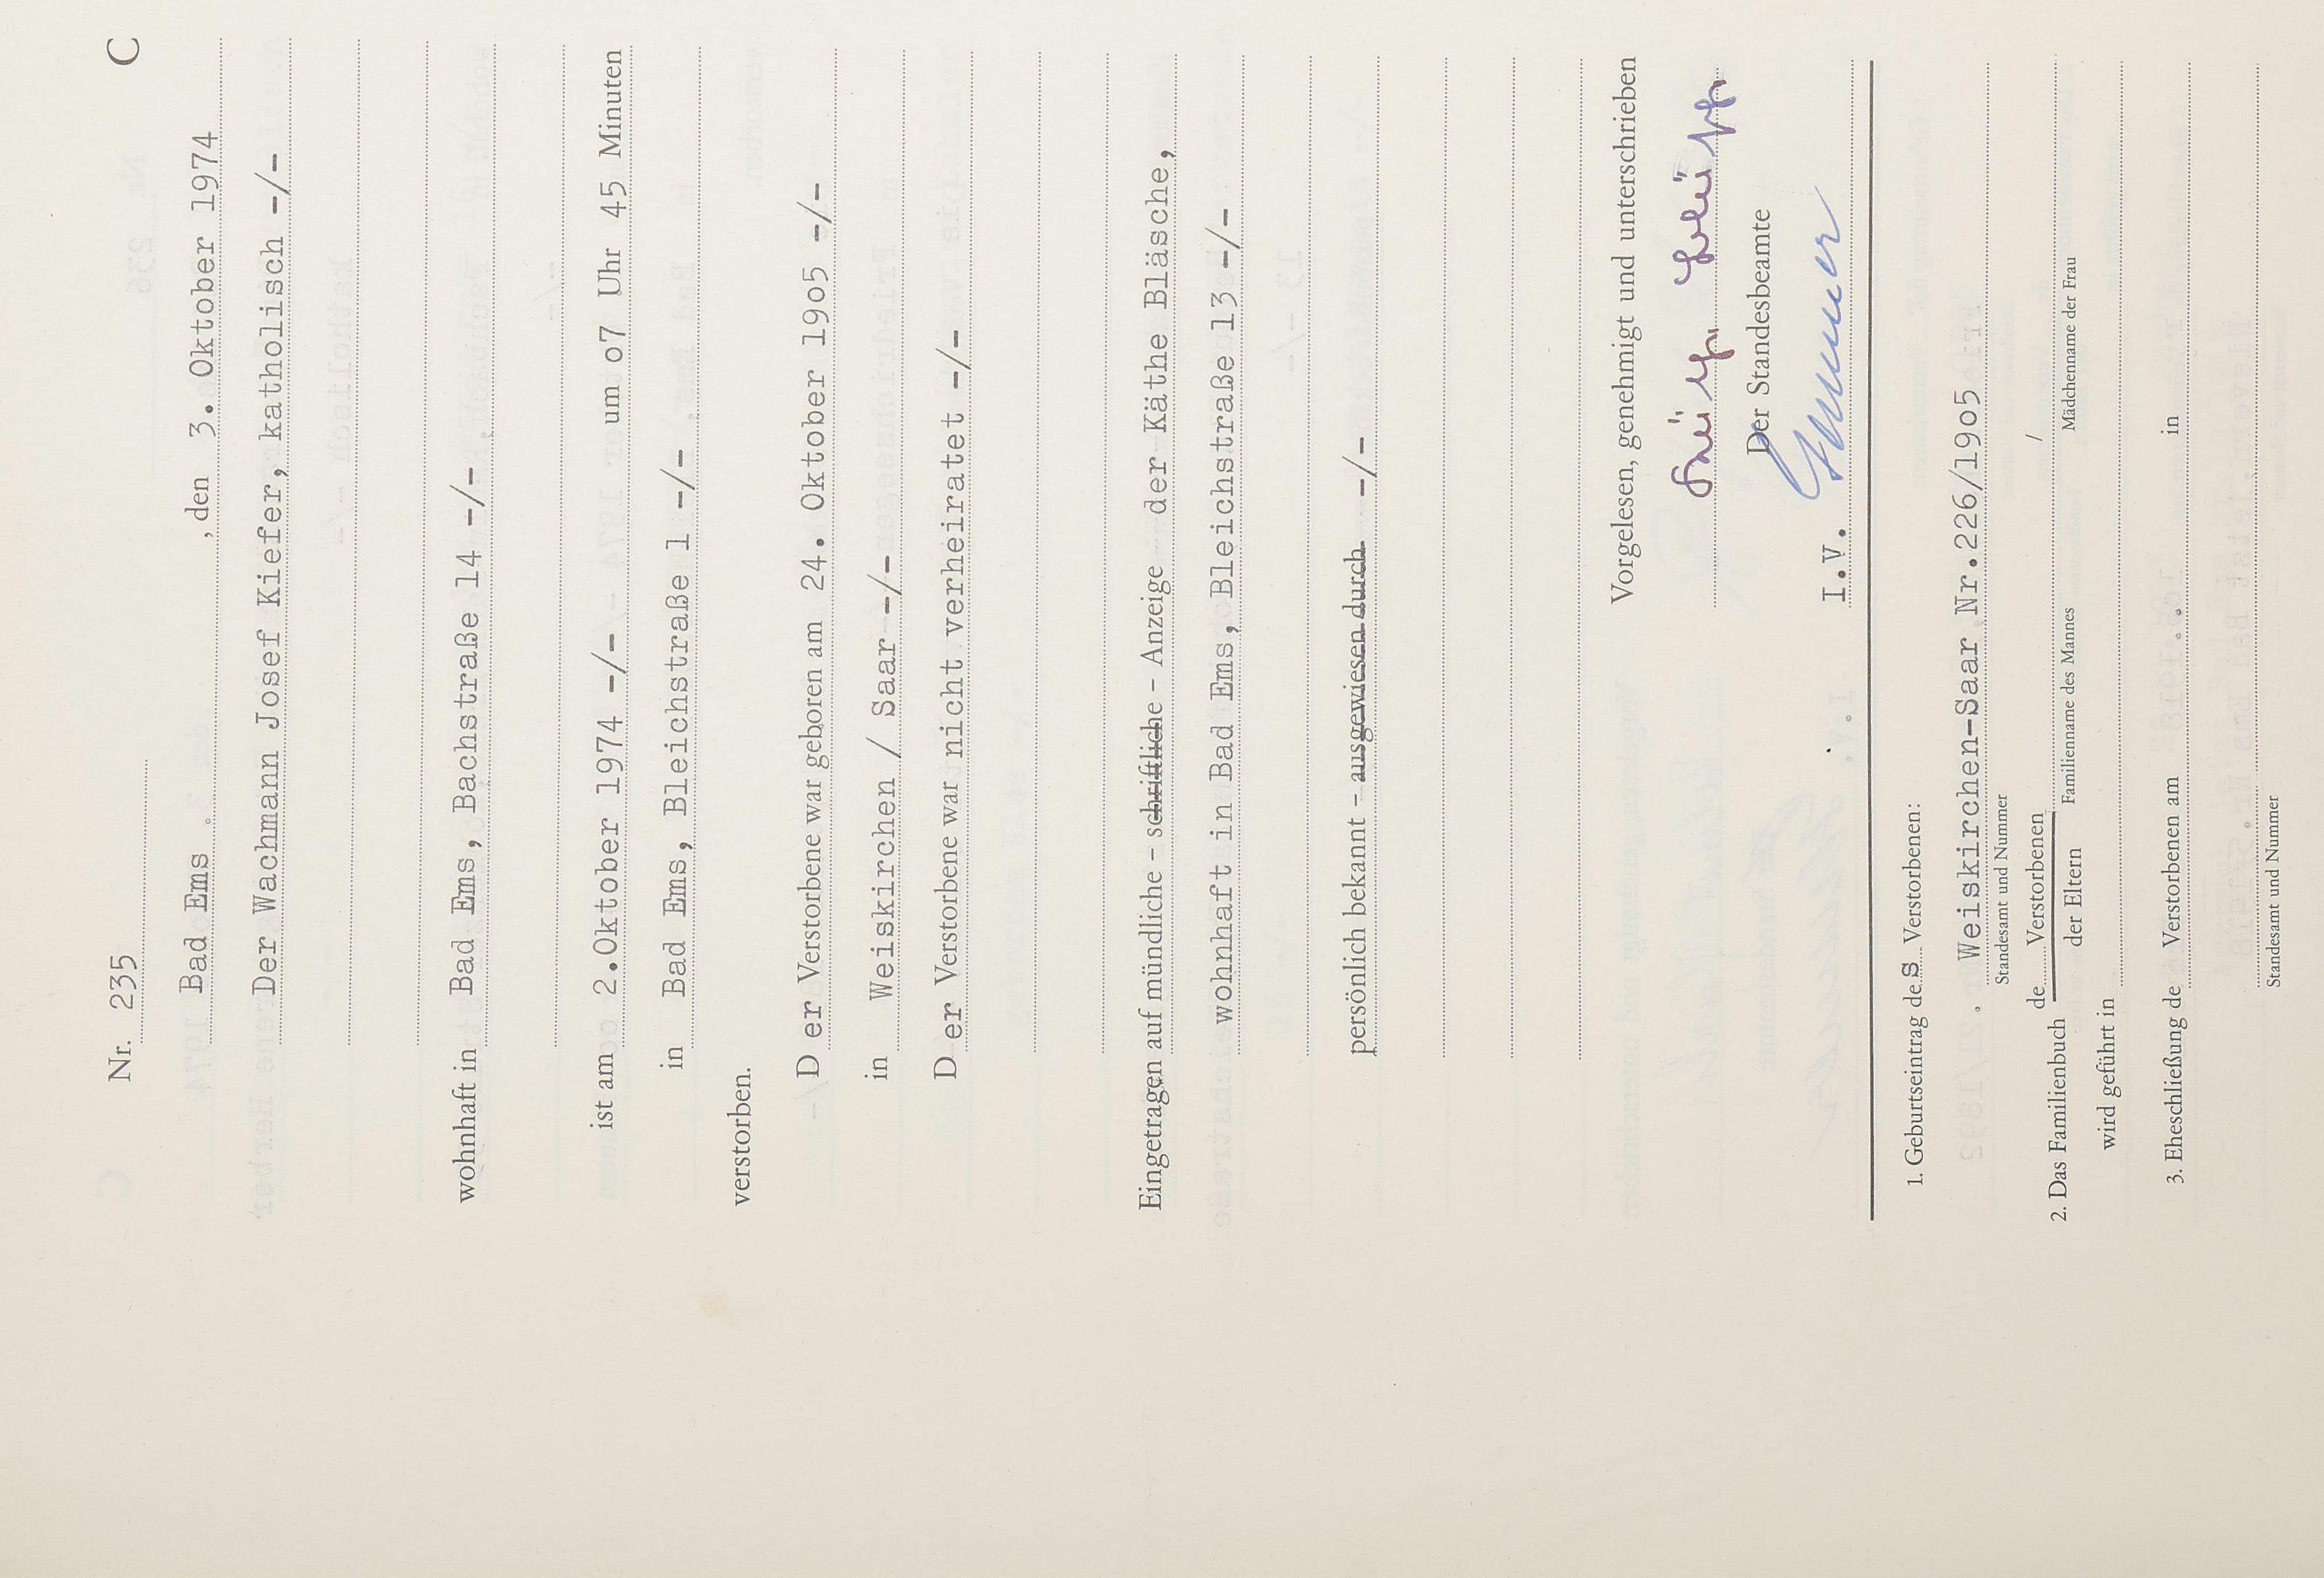 C
Nr. 235
Bad Ems , den 3. Oktober 1974
Der Wachmann Josef Kiefer, katholisch -/-
wohnhaft in Bad Ems, Bachstraße 14 -/-
ist am 2.Oktober 1974 -/- um o7 Uhr 45 Minuten
in Bad Ems, Bleichstraße 1 -/-
verstorben.
D er Verstorbene war geboren am 24. Oktober 19o5 -/-
in Weiskirchen / Saar -/-
D er Verstorbene war nicht verheiratet -/-
Eingetragen auf mündliche – schriftliche – Anzeige der Käthe Bläsche,
wohnhaft in Bad Ems, Bleichstraße 13 -/-
persönlich bekannt – ausgewiesen durch -/-
Vorgelesen, genehmigt und unterschrieben
Der Standesbeamte
I.V.
1. Geburtseintrag des Verstorbenen:
Weiskirchen-Saar Nr.226/19o5
Standesamt und Nummer
2. Das Familienbuch de Verstorbenen /
der Eltern Familienname des Mannes Mädchenname der Frau
wird geführt in
3. Eheschließung de Verstorbenen am in
Standesamt und Nummer